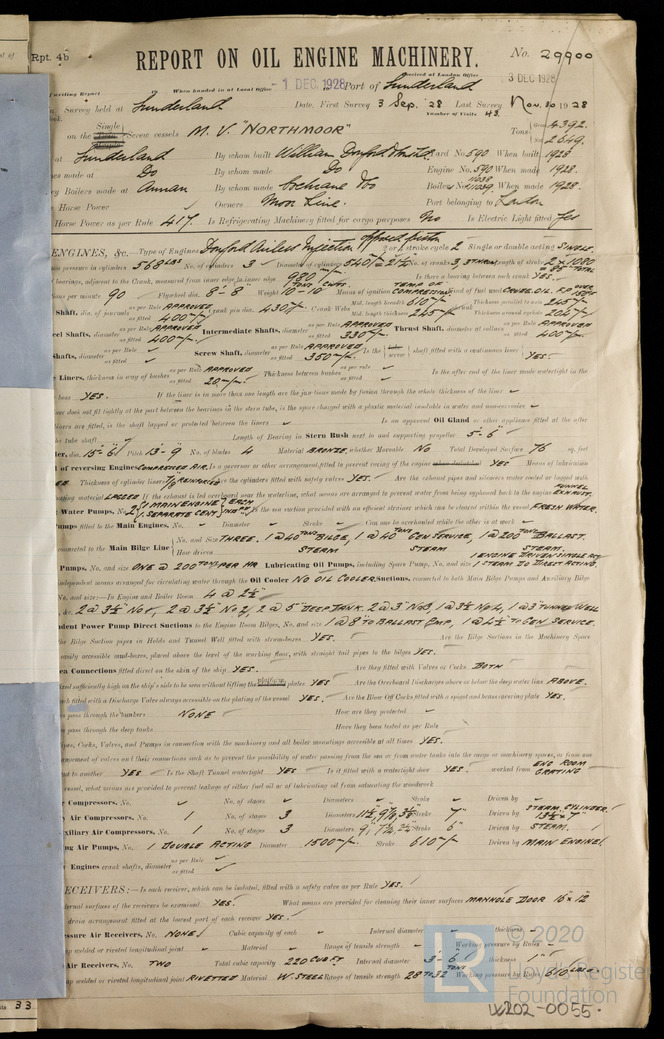 Rpt. 4b
REPORT ON OIL ENGINE MACHINERY.
No. 29900
Received at London Office
3 DEC 1928
When handed in at Local Office - 1 DEC. 1928 Port of Sunderland
Survey held at Sunderland Date, First Survey 3 Sep. '28 Last Survey Nov. 30 1928
Number of Visits 43.
on the Single Screw vessels M. V. "NORTHMOOR" Tons Gross 4392. Net 2649.
at Sunderland By whom built William Doxford & Sons Ltd Yard No. 590 When built 1928
made at Do By whom made Do Engine No. 590 When made 1928.
Boilers made at Annan By whom made Cochrane & Co Boiler No. 11039 When made 1928.
Horse Power Owners Moor Line. Port belonging to London
Horse Power as per Rule 417. Is Refrigerating Machinery fitted for cargo purposes No Is Electric Light fitted Yes
ENGINES, &c.—Type of Engines Doxford Airless Injection opposed piston 2 or 4 stroke cycle 2 Single or double acting SINGLE.
pressure in cylinders 568 LBS No. of cylinders 3 Diameter of cylinders 540 m/m = 21¼" No. of cranks 3 Length of stroke 2 × 1080 = 85" TOTAL
bearings, adjacent to the Crank, measured from inner edge to inner edge 980 m/m Is there a bearing between each crank YES.
per minute 90 Flywheel dia. 8'-8" Weight 10-10 TONS CWTS. Means of ignition TEMP OF COMPRESSION Kind of fuel used CRUDE OIL. F.P. OVER
Shaft, dia. of journals as per Rule APPROVED as fitted 400 m/m Crank pin dia. 430 m/m Crank Webs Mid. length breadth 610 m/m Mid. length thickness 245 m/m Thickness parallel to axis 245 m/m Thickness around eyehole 204 m/m
Shafts, diameter as per Rule APPROVED as fitted 400 m/m Intermediate Shafts, diameter as per Rule APPROVED as fitted 330 m/m Thrust Shaft, diameter at collars as per Rule APPROVED as fitted 400 m/m
Shafts, diameter as per Rule as fitted Screw Shaft, diameter as per Rule APPROVED as fitted 350 m/m Is the screw shaft fitted with a continuous liner YES.
Liners, thickness in way of bushes as per Rule APPROVED as fitted 20 m/m Thickness between bushes as per rule as fitted Is the after end of the liner made watertight in the
boss YES. If the liner is in more than one length are the joints made by fusion through the whole thickness of the liner
does not fit tightly at the part between the bearings in the stern tube, is the space charged with a plastic material insoluble in water and non-corrosive
liners are fitted, is the shaft lapped or protected between the liners Is an approved Oil Gland or other appliance fitted at the after
the tube shaft Length of Bearing in Stern Bush next to and supporting propeller 5'-6"
dia. 15'-6" Pitch 13'-9 No. of blades 4 Material BRONZE, whether Moveable NO Total Developed Surface 76 sq. feet
of reversing Engines COMPRESSED AIR. Is a governor or other arrangement fitted to prevent racing of the engine YES Means of lubrication
Thickness of cylinder liners Are the cylinders fitted with safety valves YES. Are the exhaust pipes and silencers water cooled or lagged with
material LAGGED If the exhaust is led overboard near the waterline, what means are arranged to prevent water from being syphoned back to the engine FUNNEL EXHAUST.
Water Pumps, No. 2 (1 MAIN ENGINE 1 SEPARATE CENT) EACH Is the sea suction provided with an efficient strainer which can be cleared within the vessel FRESH WATER.
Pumps fitted to the Main Engines, No. Diameter Stroke Can one be overhauled while the other is at work
connected to the Main Bilge Line No. and Size THREE. 1 @ 40 TONS BILGE, 1 @ 40 TONS GEN SERVICE, 1 @ 200 TONS BALLAST.
How driven STEAM STEAM STEAM.
Pumps, No. and size ONE @ 200 TONS PER HR Lubricating Oil Pumps, including Spare Pump, No. and size 1 ENGINE DRIVEN SINGLE ACT. 1 STEAM DO DIRECT ACTING.
independent means arranged for circulating water through the Oil Cooler NO OIL COOLER Suctions, connected to both Main Bilge Pumps and Auxiliary Bilge
No. and size:—In Engine and Boiler Room 4 @ 2½"
&c. 2 @ 3½" No 1, 2 @ 3½" No 2, 2 @ 5" DEEP TANK. 2 @ 3" No 3, 1 @ 3½" No 4, 1 @ 3" TUNNEL WELL
Power Pump Direct Suctions to the Engine Room Bilges, No. and size 1 @ 8" TO BALLAST PMP, 1 @ 4½" TO GEN. SERVICE.
the Bilge Suction pipes in Holds and Tunnel Well fitted with strum-boxes YES. Are the Bilge Suctions in the Machinery Space
easily accessible mud-boxes, placed above the level of the working floor, with straight tail pipes to the bilges YES.
Sea Connections fitted direct on the skin of the ship YES. Are they fitted with Valves or Cocks BOTH
fixed sufficiently high on the ship's side to be seen without lifting the plates YES Are the Overboard Discharges above or below the deep water line ABOVE.
each fitted with a Discharge Valve always accessible on the plating of the vessel YES. Are the Blow Off Cocks fitted with a spigot and brass covering plate YES.
pass through the bunkers NONE How are they protected
pass through the deep tanks Have they been tested as per Rule
Pipes, Cocks, Valves, and Pumps in connection with the machinery and all boiler mountings accessible at all times YES.
arrangement of valves and their connections such as to prevent the possibility of water passing from the sea or from water tanks into the cargo or machinery spaces, or from one
to another YES Is the Shaft Tunnel watertight YES Is it fitted with a watertight door YES. worked from ENG ROOM GRATING
vessel, what means are provided to prevent leakage of either fuel oil or of lubricating oil from saturating the woodwork
Compressors, No. No. of stages Diameters Stroke Driven by
Air Compressors, No. 1 No. of stages 3 Diameters 11½, 9⅞, 3⅜ Stroke 7" Driven by STEAM CYLINDER 13½ × 7"
Auxiliary Air Compressors, No. 1 No. of stages 3 Diameters Stroke 6" Driven by STEAM.
Air Pumps, No. 1 DOUBLE ACTING Diameter 1500 m/m. Stroke 610 m/m Driven by MAIN ENGINE
Engines crank shafts, diameter as per Rule as fitted
RECEIVERS:—Is each receiver, which can be isolated, fitted with a safety valve as per Rule YES.
internal surfaces of the receivers be examined YES. What means are provided for cleaning their inner surfaces MANHOLE DOOR 16" × 12
drain arrangement fitted at the lowest part of each receiver YES.
Pressure Air Receivers, No. NONE Cubic capacity of each Internal diameter thickness
lap welded or riveted longitudinal joint Material Range of tensile strength Working pressure by Rules
Air Receivers, No. TWO Total cubic capacity 220 CUB FT Internal diameter 3'-6" thickness 1"
lap welded or riveted longitudinal joint RIVETTED Material W. STEEL Range of tensile strength 28 TO 32 TONS Working pressure by Rules 610 LBS
33
© 2020
Lloyd's Register
Foundation
LR
W202-0055.